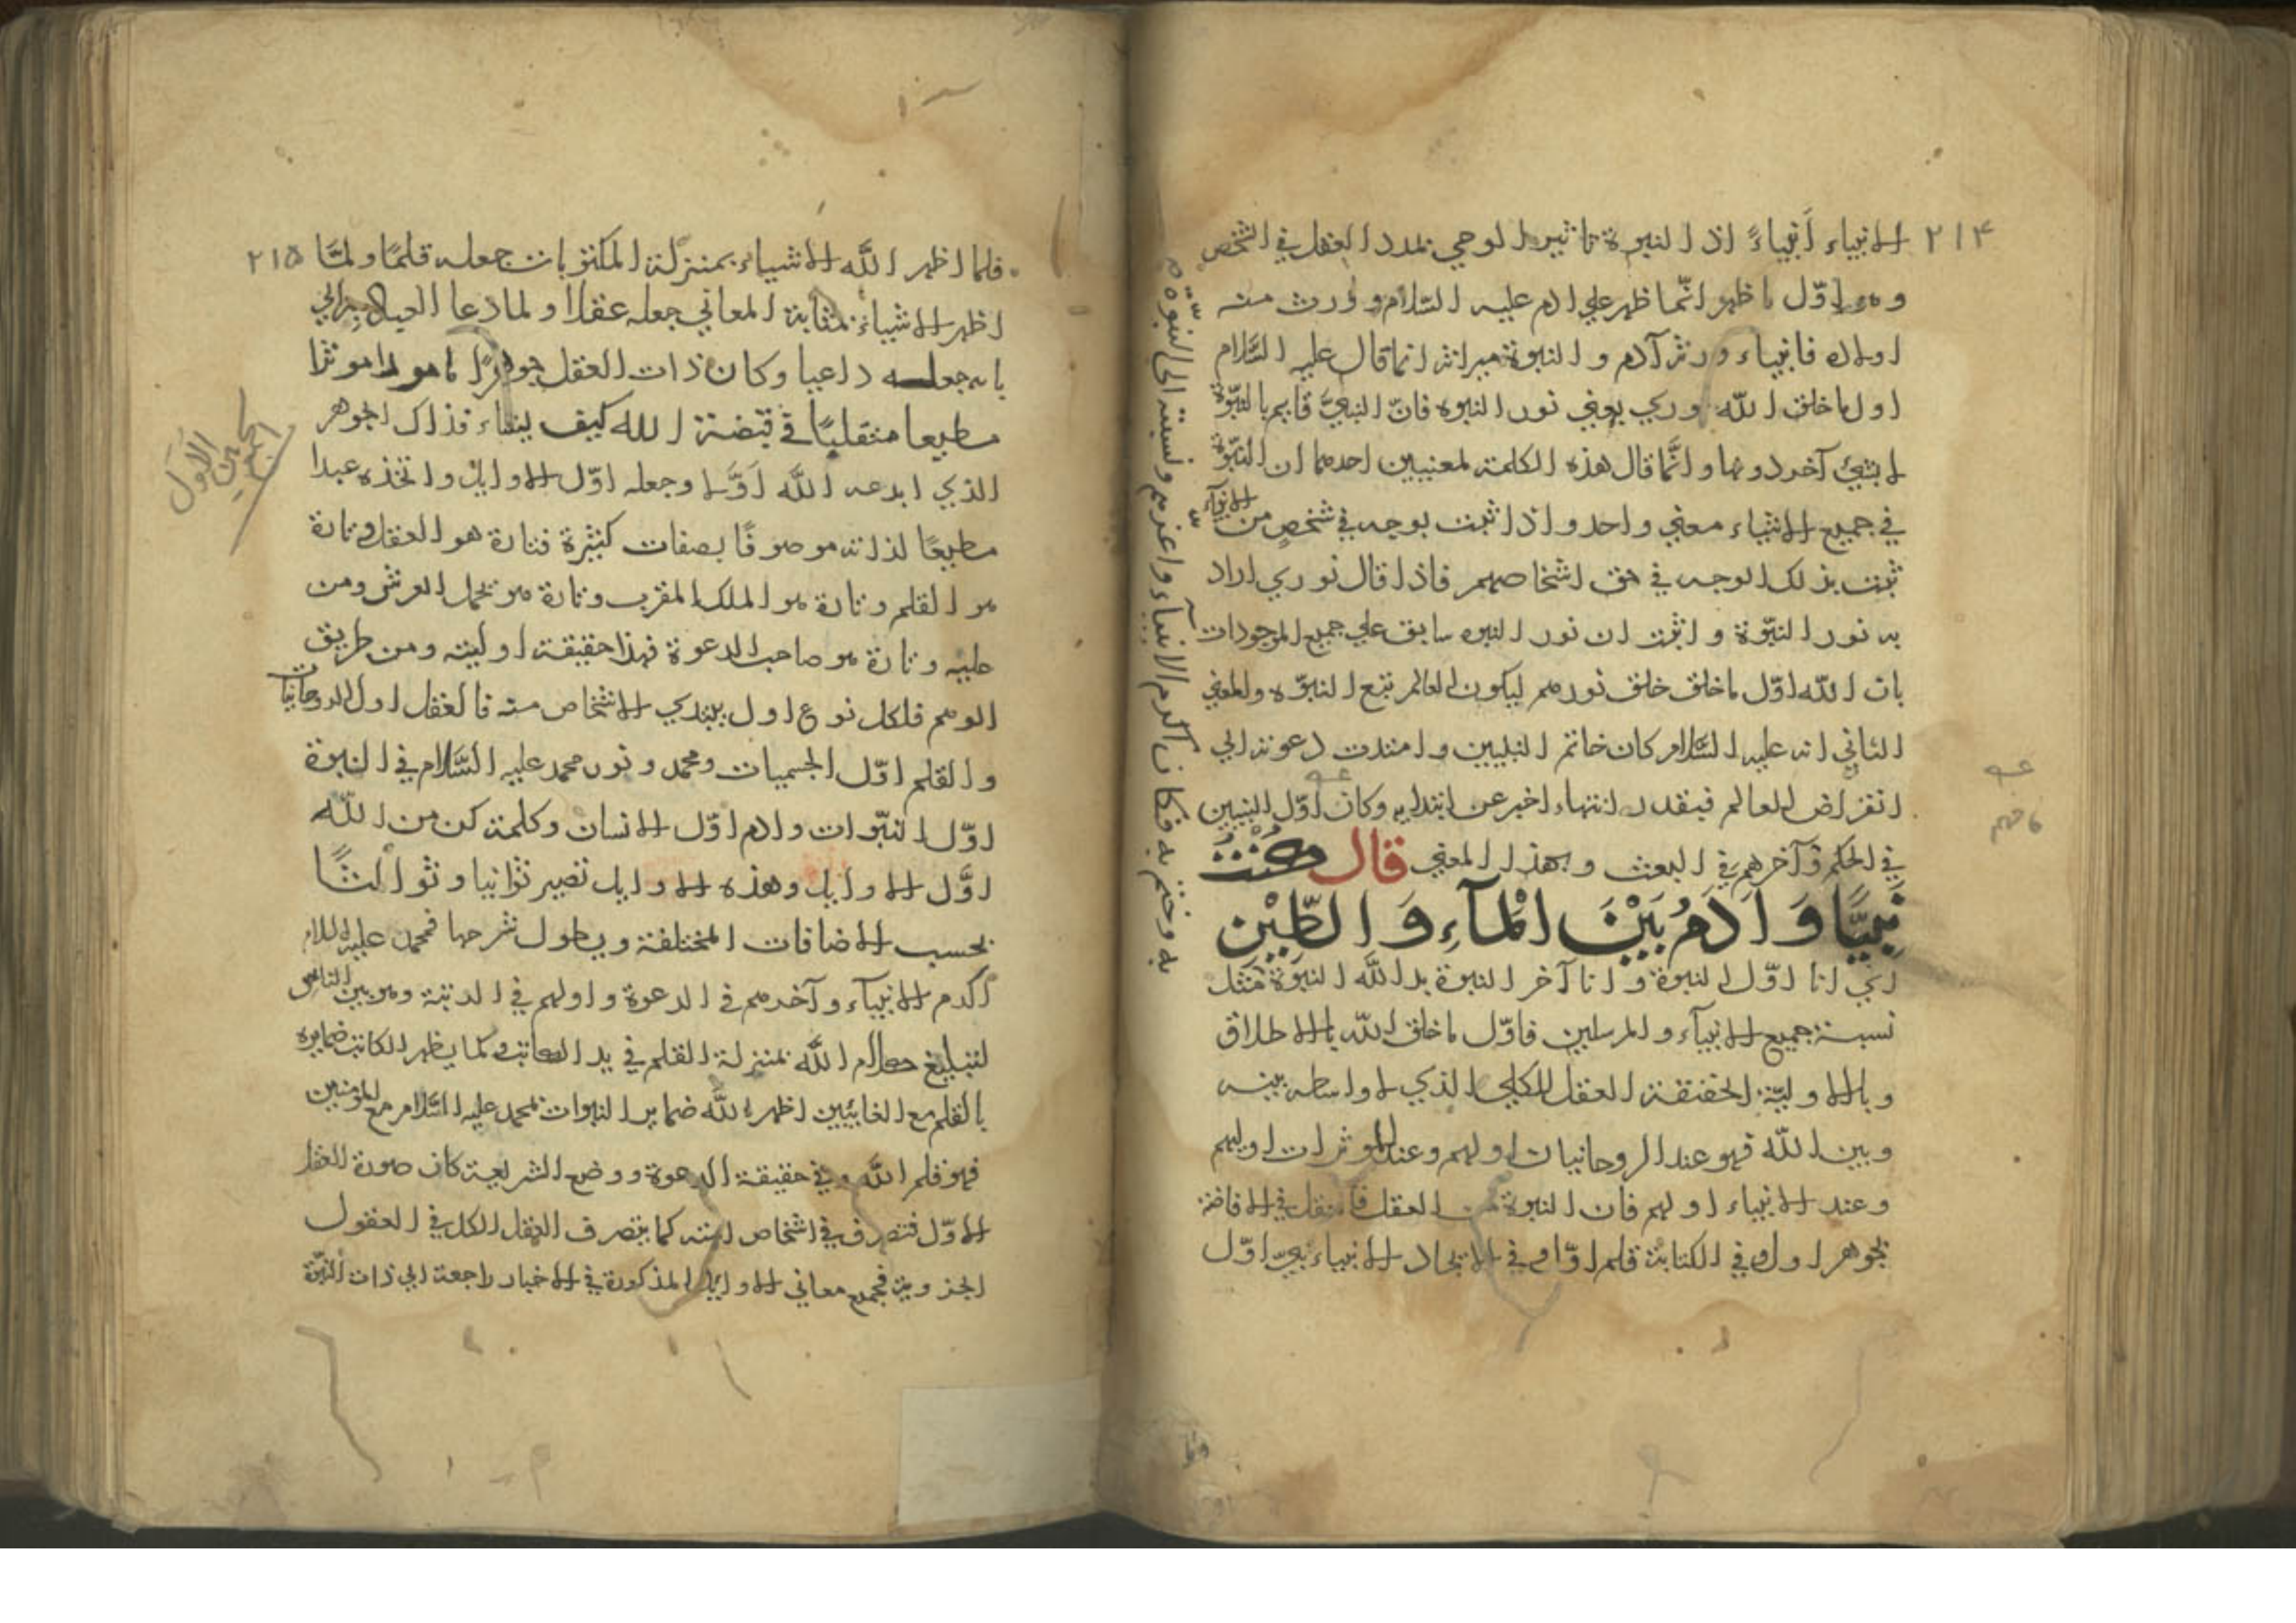 ٢١۴
الانبياء أنبياءً اذ النبوة تاثير الوحي بمدد العقل في الشخص
واول ما ظهر انّما ظهر علي ادم عليه السّلام وورث منه
اولاده فانبياء ورثة آدم والنبوة ميراثه انما قال عليه السّلام
اول ما خلق اللّه نوري يعني نور النبوه فانّ النبيّ قايم بالنبوّة
لا بشئ آخر دونها وانّما قال هذه الكلمة لمعنيين احدهما ان النبوّة
في جميع الانبياء معني واحد واذا ثبت بوجه في شخصٍ من الانبيآء
ثبت بذلك الوجه في حق اشخاصهم فاذا قال نوري اراد
به نور النبوّة واثبت ان نور النبوه سابق علي جميع الموجودات
بان اللّه اوّل ما خلق خلق نورهم ليكون العالم تبع النبوّه والمعني
الثاني انه عليه السّلام كان خاتم النبيين وامتدت دعوته الي
انقراض العالم فبقدر انتهاء اخبر عن ابتدايه وكان اوّل النبيين
في الحكم وآخرهم في البعث وبهذا المعني قال كُنْتُ
نَبِيًّا وَآدَمُ بَيْنَ الْمَآءِ وَالطِّيْنِ
اي انا اوّل النبوة وانا آخر النبوة بدا اللّه النبوة مثل
نسبة جميع الانبيآء والمرسلين فاوّل ما خلق اللّه بالاطلاق
وبالاوليّة الحقيقة العقل الكلي الذي لا واسطه بينه
وبين اللّه فهو عند الروحانيات اولهم وعند المؤثرات اولهم
وعند الانبياء اولهم فان النبوة من العقل في الافاضة
جوهر اول وفي الكتابة قلم اوّل وفي الاتحاد الانبياء نبيّ اوّل
واعزهم ونسبته الى النبوّة
فكان اكرم الانبيآء
به وختم به
٢١٥
فلما اظهر اللّه الاشياء بمنزلة المكتوبات جعله قلمًا ولمّا
اظهر الاشياء بمثابة المعاني جعله عقلا ولما دعا العباد الي
بابه جعله داعيا وكان ذات العقل جوهرًا مامورا موثرا
مطيعا متقلبًا في قبضة اللّه كيف يشاء فذاك الجوهر
الذي ابدعه اللّه اوّلا وجعله اوّل الاوايل واتخذه عبدا
مطيعًا لذاته موصوفًا بصفات كثيرة فتارة هو العقل وتارة
هو القلم وتارة هو الملك المقرب وتارة هو تحمل العرش ومن
عليه وتارة هو صاحب الدعوة فهذا حقيقة اوليته ومن طريق
الوهم فلكل نوع اول يبتدي الاشخاص منه فالعقل اول الروحانيات
والقلم اوّل الجسميات ومحمد ونور محمد عليه السّلام في النبوة
اوّل النبوّات وادم اوّل الانسان وكلمة كن من اللّه
اوّل الاوايل وهذه الاوايل تصير ثوانيا وثوالثًا
بحسب الاضافات المختلفة ويطول شرحها فمحمد عليه السلام
اكرم الانبيآء وآخرهم في الدعوة واولهم في الرتبة وهو بين الناس
لتبليغ كلام اللّه بمنزلة القلم في يد الكاتب وكما يظهر الكاتب ضمايره
بالقلم مع الغايبين اظهر اللّه ضماير النبوات بمحمد عليه السّلام مع المؤمنين
فهو قلم اللّه وفي حقيقة الدعوة ووضع الشريعة كان صورة العقل
الاوّل فتصرف في اشخاص امته كما يتصرف العقل الكل في العقول
الجزوية فجميع معاني الاوايل المذكورة في الاخبار راجعة الي ذات النبوّة
الاول